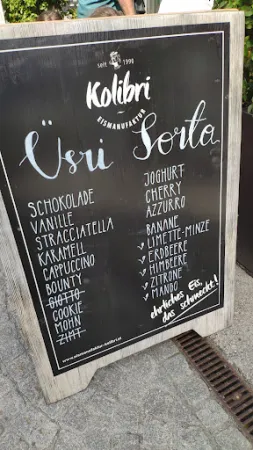 seit 1998
Kolibri
EISMANUFAKTUR
Üsri Sorta
SCHOKOLADE
VANILLE
STRACCIATELLA
KARAMELL
CAPPUCCINO
BOUNTY
GIOTTO
COOKIE
MOHN
ZIMT
JOGHURT
CHERRY
AZZURRO
BANANE
V LIMETTE-MINZE
V ERDBEERE
V HIMBEERE
V ZITRONE
V MANGO
ehrliches Eis,
das schmeckt!
www.eismanufaktur-kolibri.at